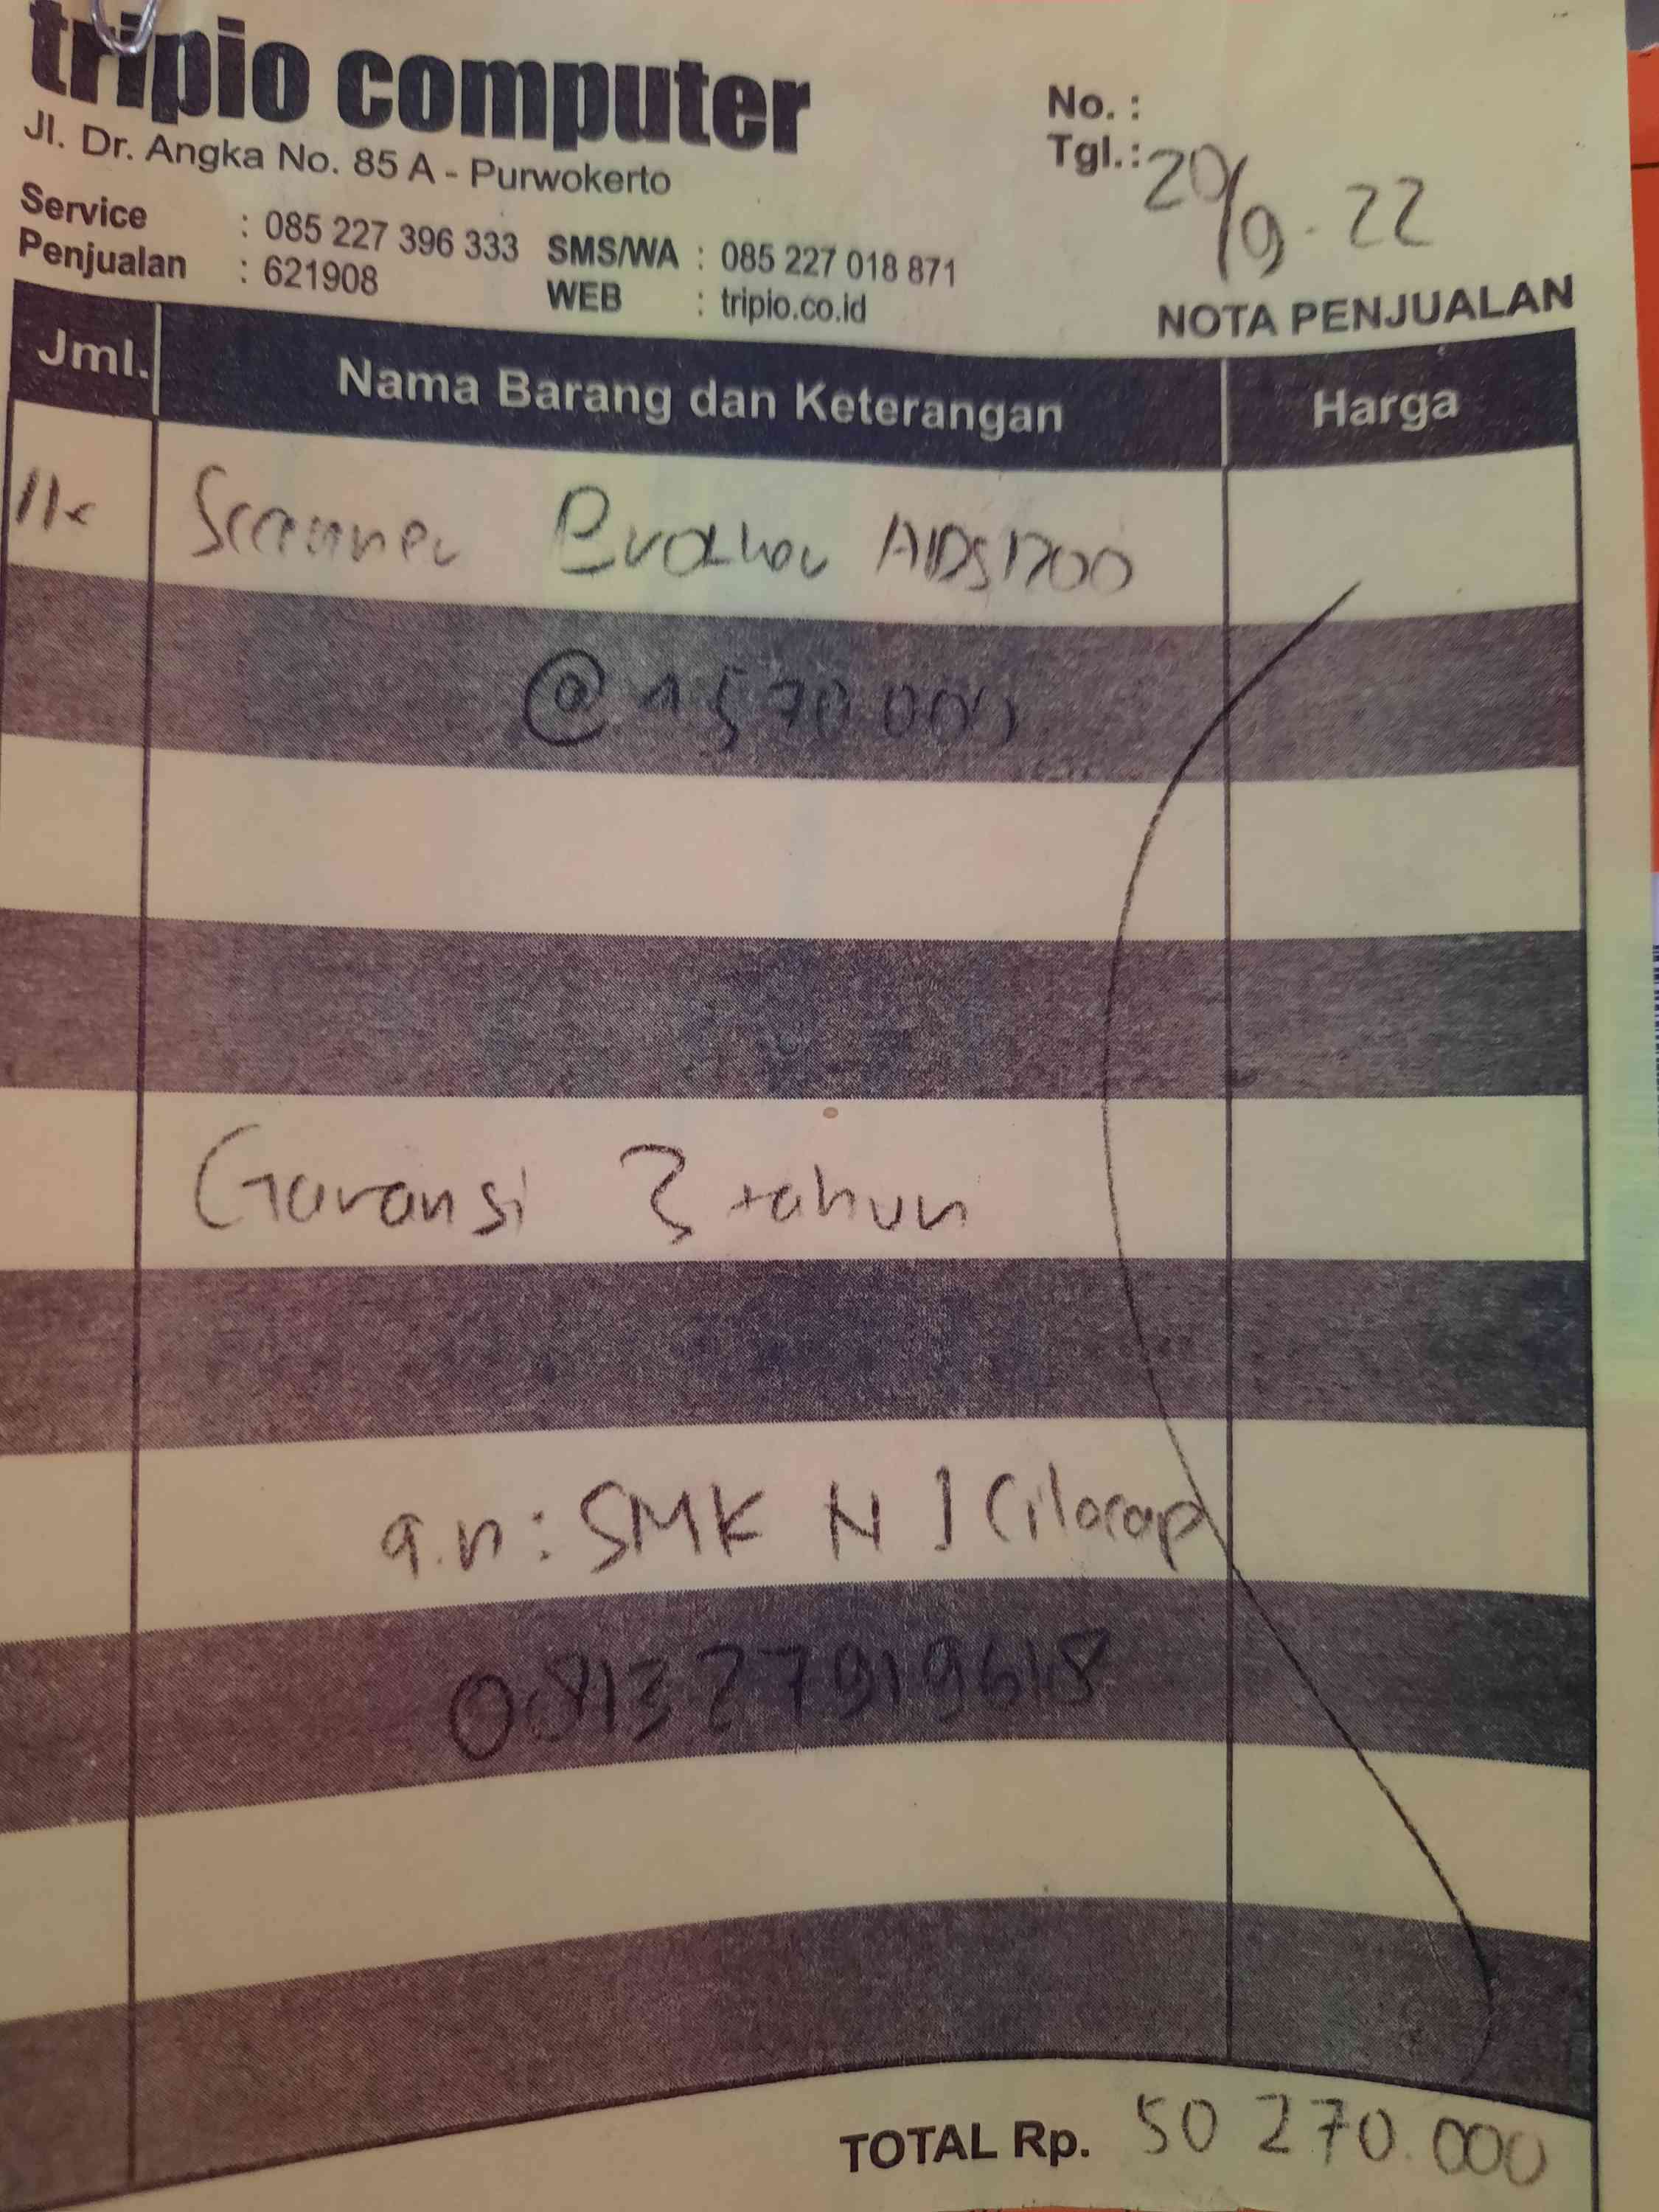 tripio computer
Jl. Dr. Angka No. 85 A - Purwokerto
Service : 085 227 396 333 SMS/WA : 085 227 018 871
Penjualan : 621908 WEB : tripio.co.id
No. :
Tgl.: 20/9.22
NOTA PENJUALAN
Jml. Nama Barang dan Keterangan Harga
11x Scanner Brother ADS1700
@ 4 570 000
Garansi 3 tahun
a.n: SMK N 1 Cilacap
081327919618
TOTAL Rp. 50 270.000